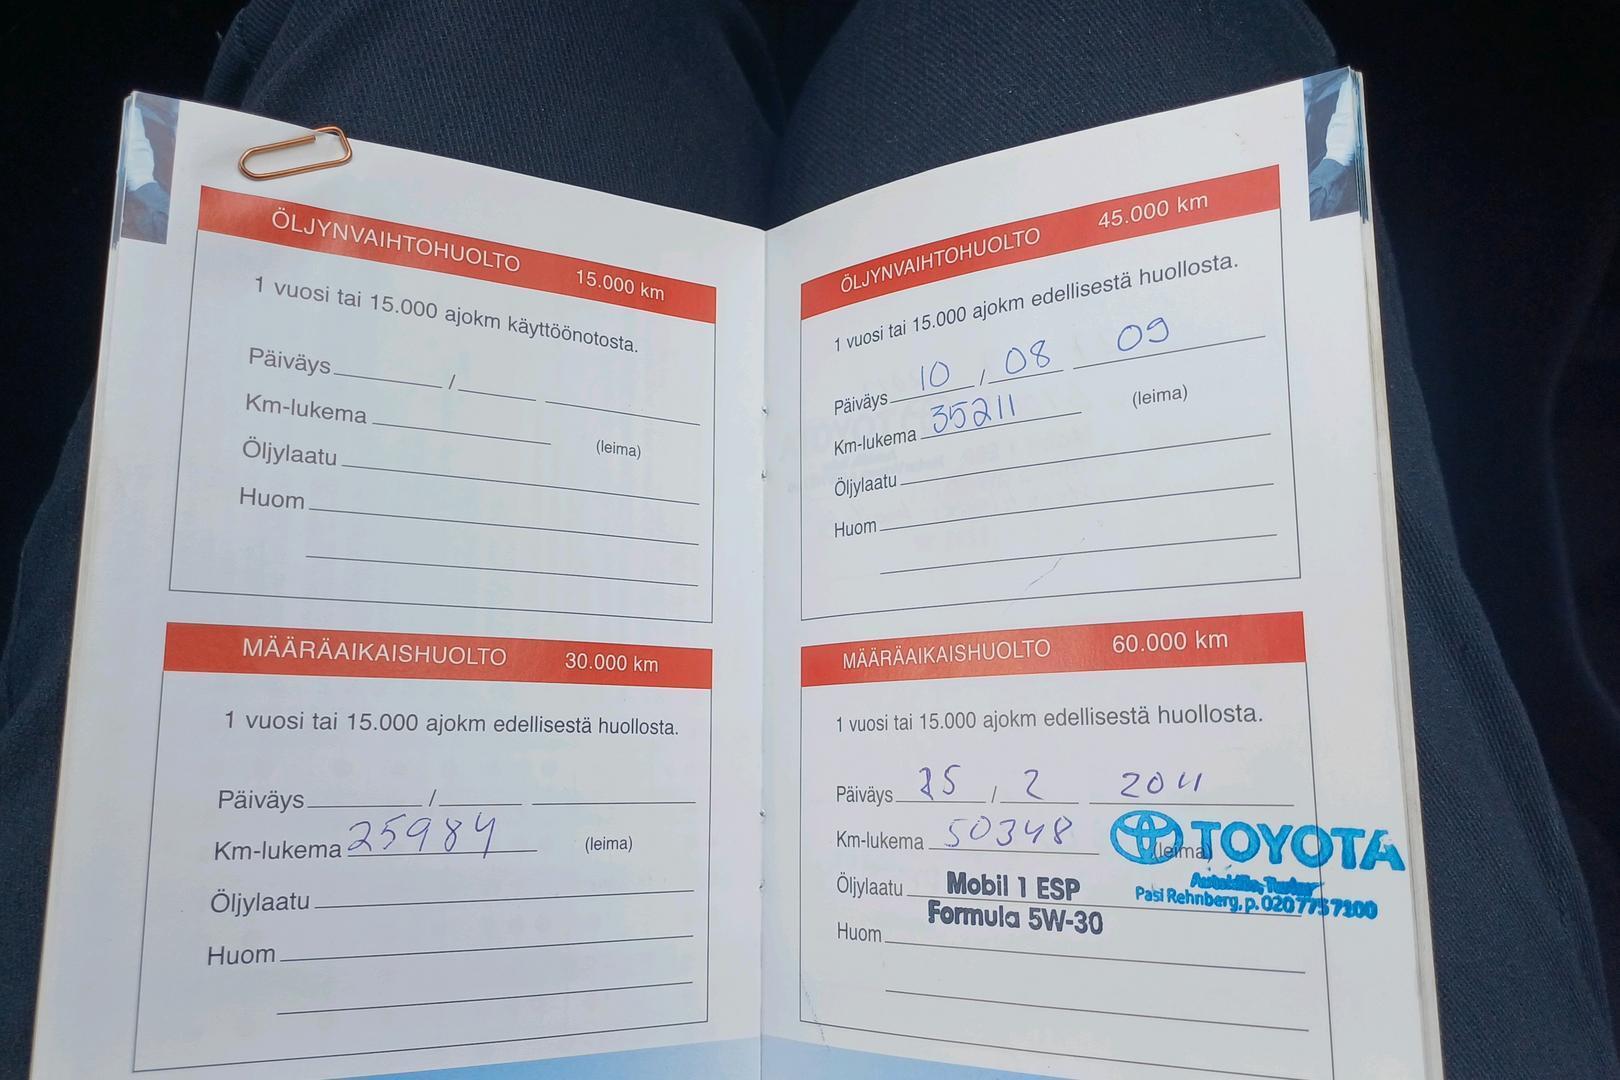 ÖLJYNVAIHTOHUOLTO 15.000 km
1 vuosi tai 15.000 ajokm käyttöönotosta.
Päiväys /
Km-lukema
(leima)
Öljylaatu
Huom
MÄÄRÄAIKAISHUOLTO 30.000 km
1 vuosi tai 15.000 ajokm edellisestä huollosta.
Päiväys /
Km-lukema 25984 (leima)
Öljylaatu
Huom
ÖLJYNVAIHTOHUOLTO 45.000 km
1 vuosi tai 15.000 ajokm edellisestä huollosta.
Päiväys 10 / 08 09
Km-lukema 35211 (leima)
Öljylaatu
Huom
MÄÄRÄAIKAISHUOLTO 60.000 km
1 vuosi tai 15.000 ajokm edellisestä huollosta.
Päiväys 25 / 2 2011
Km-lukema 50348 (leima) TOYOTA
Öljylaatu Mobil 1 ESP
Pasi Rehnberg, p. 020 775 7100
Formula 5W-30
Huom